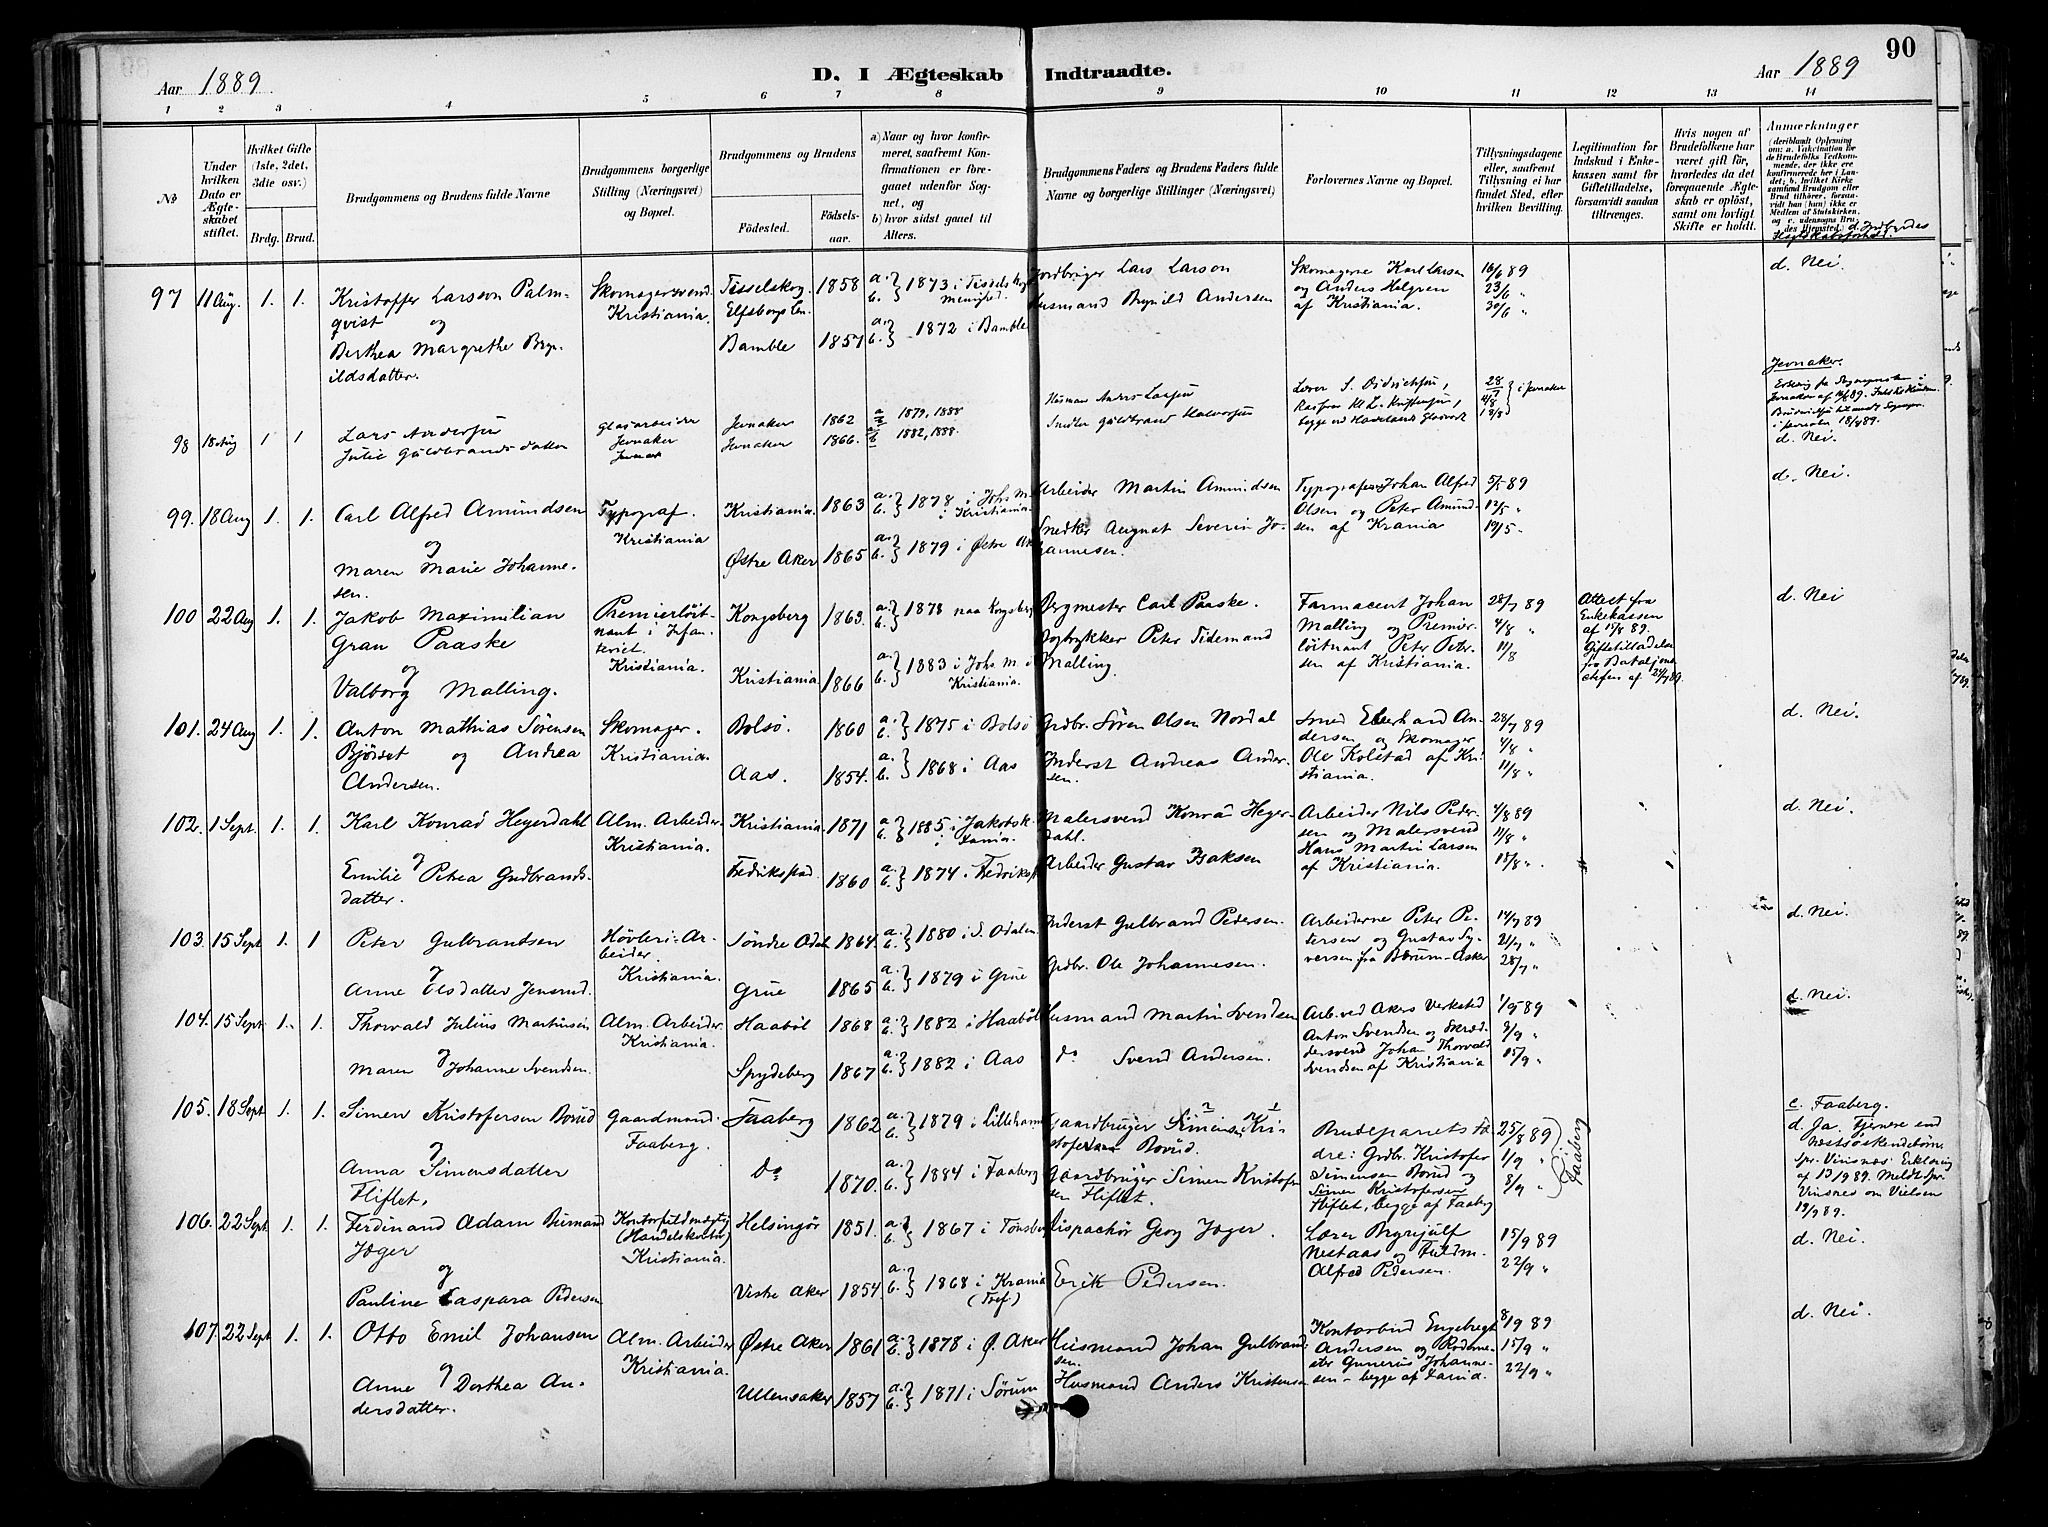 90
Aar 1889.
D. I Ægteskab Indtraadte.
Aar 1889
1 2 3 4 5 6 7 8 9 10 11 12 13 14
No
Under hvilken Dato er Ægteskabet stiftet.
Hvilket Gifte (1ste, 2det, 3die osv.)
Brdg. Brud.
Brudgommens og Brudens fulde Navne
Brudgommens borgerlige Stilling (Næringsvei) og Bopæl.
Brudgommens og Brudens
Födested.
Födselsaar.
a) Naar og hvor konfirmeret, saafremt Konfirmationen er foregaaet udenfor Sognet, og
b) hvor sidst gaaet til Alters.
Brudgommens Faders og Brudens Faders fulde Navne og borgerlige Stillinger (Næringsvei)
Forlovernes Navne og Bopæl.
Tillysningsdagene eller, saafremt Tillysning ei har fundet Sted, efter hvilken Bevilling.
Legitimation for Indskud i Enkekassen samt for Giftetilladelse, forsaavidt saadan tiltrænges.
Hvis nogen af Brudefolkene har været gift för, hvorledes da det foregaaende Ægteskab er oplöst, samt om lovligt Skifte er holdt.
Anmærkninger
97 11 Aug. 1. 1.
Kristoffer Larsson Palmqvist
og
Berthea Margrethe Brynildsdatter.
Skomagersvend. Kristiania.
Tisselskog. Elfsborgs Len. 1858
Bamble 1857
a. b. } 1873 i Tisselskogs Menighed.
a. b. } 1872 i Bamble
Jordbruger Lars Larson
Husmand Brynild Andersen
Skomagerne Karl Larsen og Anders Helgren af Kristiania.
16/6 89
23/6 "
30/6 "
d. Nei.
98 18 Aug 1 1
Lars Andersen
Julie Guldbrandsdatter
Glasarbeider Jevnaker
Jevnaker 1862
Jevnaker 1866.
1879, 1888
1882, 1888.
Husman Anders Larsen
Smelter Guldbrand Halvorsen
28/7 4/8 18/8 } i Jevnaker
Jevnaker.
d. Nei.
99. 18 Aug 1. 1.
Carl Alfred Amundsen
og
Maren Marie Johannesen.
Typograf. Kristiania
Kristiania. 1863
Østre Aker 1865
a. b. } 1878 i Johs. M. i Kristiania.
a. b. } 1879 i Østre Ak
Arbeider Martin Amundsen
Snedker August Severin Johannesen.
Typograferne Johan Alfred Olsen og Peter Amundsen af Krania
5/5 89
12/5 "
19/5.
d. Nei.
100 22 Aug 1. 1.
Jakob Maximilian Gran Paaske
og
Valborg Malling.
Premierløitnant i Infanteriet. Kristiania.
Kongsberg 1863.
Kristiania. 1866
a. b. } 1878 paa Kongsberg
a. b. } 1883 i Johs. M. i Kristiania.
Bergmester Carl Paaske.
Bogtrykker Peter Tidemand Malling.
Farmaceut Johan Malling og Premierløitnant Peter Petersen af Kristiania.
28/7 89
4/8 "
11/8
Attest fra Enkekassen af 15/8 89. Giftetilladelse fra Bataljonschefen af 21/7 89.
d. Nei
101. 24 Aug 1. 1.
Anton Mathias Sørensen Bjørset og Andrea Andersen.
Skomager. Kristiania.
Bolsø. 1860
Aas. 1854.
a. b. } 1875 i Bolsø
a. b. } 1868 i Aas
Grdbr. Søren Olsen Nordal
Inderst Andreas Andersen.
Smed Eberhard Andersen og Skomager Ole Kolstad af Kristiania.
28/7 89
4/8 "
11/8 "
d. Nei.
102. 1 Sept. 1. 1.
Karl Konrad Heyerdahl
og
Emilie Petrea Gudbrandsdatter.
Alm. Arbeider. Kristiania.
Kristiania. 1871
Fredrikstad. 1860
a. b. } 1885 i Jakobsk. i Krania.
a. b. } 1874 i Fredrikst
Malersvend Konrad Heyerdahl.
Arbeider Gustav Isaksen
Arbeider Nils Pedersen og Malersvend Hans Martin Larsen af Kristiania.
4/8 89
11/8 "
18/8 ".
d. Nei.
103. 15 Sept 1. 1
Peter Gulbrandsen
og
Anne Olsdatter Jensrud.
Høvleri-Arbeider. Kristiania.
Søndre Odal 1864.
Grue 1865
a. b. } 1880 i S. Odalen
a. b. } 1879 i Grue
Inderst Gulbrand Pedersen.
Grdbr. Ole Johannesen.
Arbeiderne Peter Petersen og Gustav Syversen fra Bærum-Asker
14/7 89
21/7 "
28/7 "
d. Nei.
104. 15 Sept. 1. 1.
Thorvald Julius Martinsen
og
Maren Johanne Svendsen.
Alm. Arbeider. Kristiania.
Haabøl 1868
Spydeberg 1867
a. b. } 1882 i Haabøl
a. b. } 1882 i Aas
Husmand Martin Svendsen
do Svend Andersen.
Arb. ved Akers Verksted Anton Svendsen og Skræddersvend Johan Thorvald Svendsen af Kristiania
1/9 89
8/9 "
15/9 "
d. Nei.
105. 18 Sept 1. 1.
Simen Kristofersen Borud
og
Anna Simensdatter Fliflet,
Gaardmand. Faaberg.
Faaberg 1862
Do 1870.
a. b. } 1879 i Lilleham
a. b. } 1884 i Faaberg
Gaardbruger Simensen Kristofer Borud.
Gaardbruger Simen Kristofersen Fliflet.
Brudeparets Fædre: Grdbr. Kristofer Simensen Borud og Simen Kristofersen Fliflet, begge af Faaberg
25/8 89
1/9 "
8/9 "
i Faaberg
c. Faaberg.
d. Ja. Fjernere end Næstsøskendebørn.
106. 22 Sept 1. 1.
Ferdinand Adam Bumand Jæger
og
Pauline Caspara Pedersen
Kontorfuldmægtig (Handelskontor) Kristiania
Helsingör 1851.
Vestre Aker 1854
a. b. } 1867 i Tønsberg
a. b. } 1868 i Krania (Tref.)
Dispachør Georg Jæger.
Erik Pedersen.
Lærer Brynjulf Nestaas og Fuldm. Alfred Pedersen.
15/9 89
22/9 "
d. Nei.
107. 22 Sept 1. 1.
Otto Emil Johansen
og
Anne Dorthea Andersdatter.
Alm. Arbeider Kristiania.
Østre Aker 1861
Ullensaker 1857
a. b. } 1878 i Ø. Aker
a. b. } 1871 i Sørum
Husmand Johan Gulbrandsen.
Husmand Anders Kristensen
Kontorbud Engebregt Andersen og Rodemester Gunerius Johannesen - begge af Xania.
8/9 89
15/9 "
22/9 "
d. Nei.